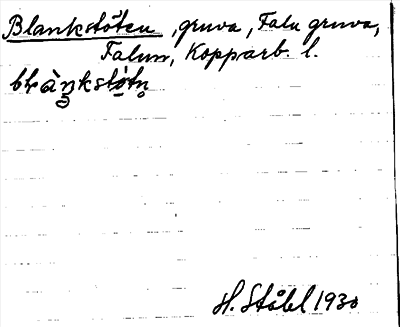 Blankstöten, gruva, Falu gruva,
Falun, Kopparb. l.
H. Ståhl 1930